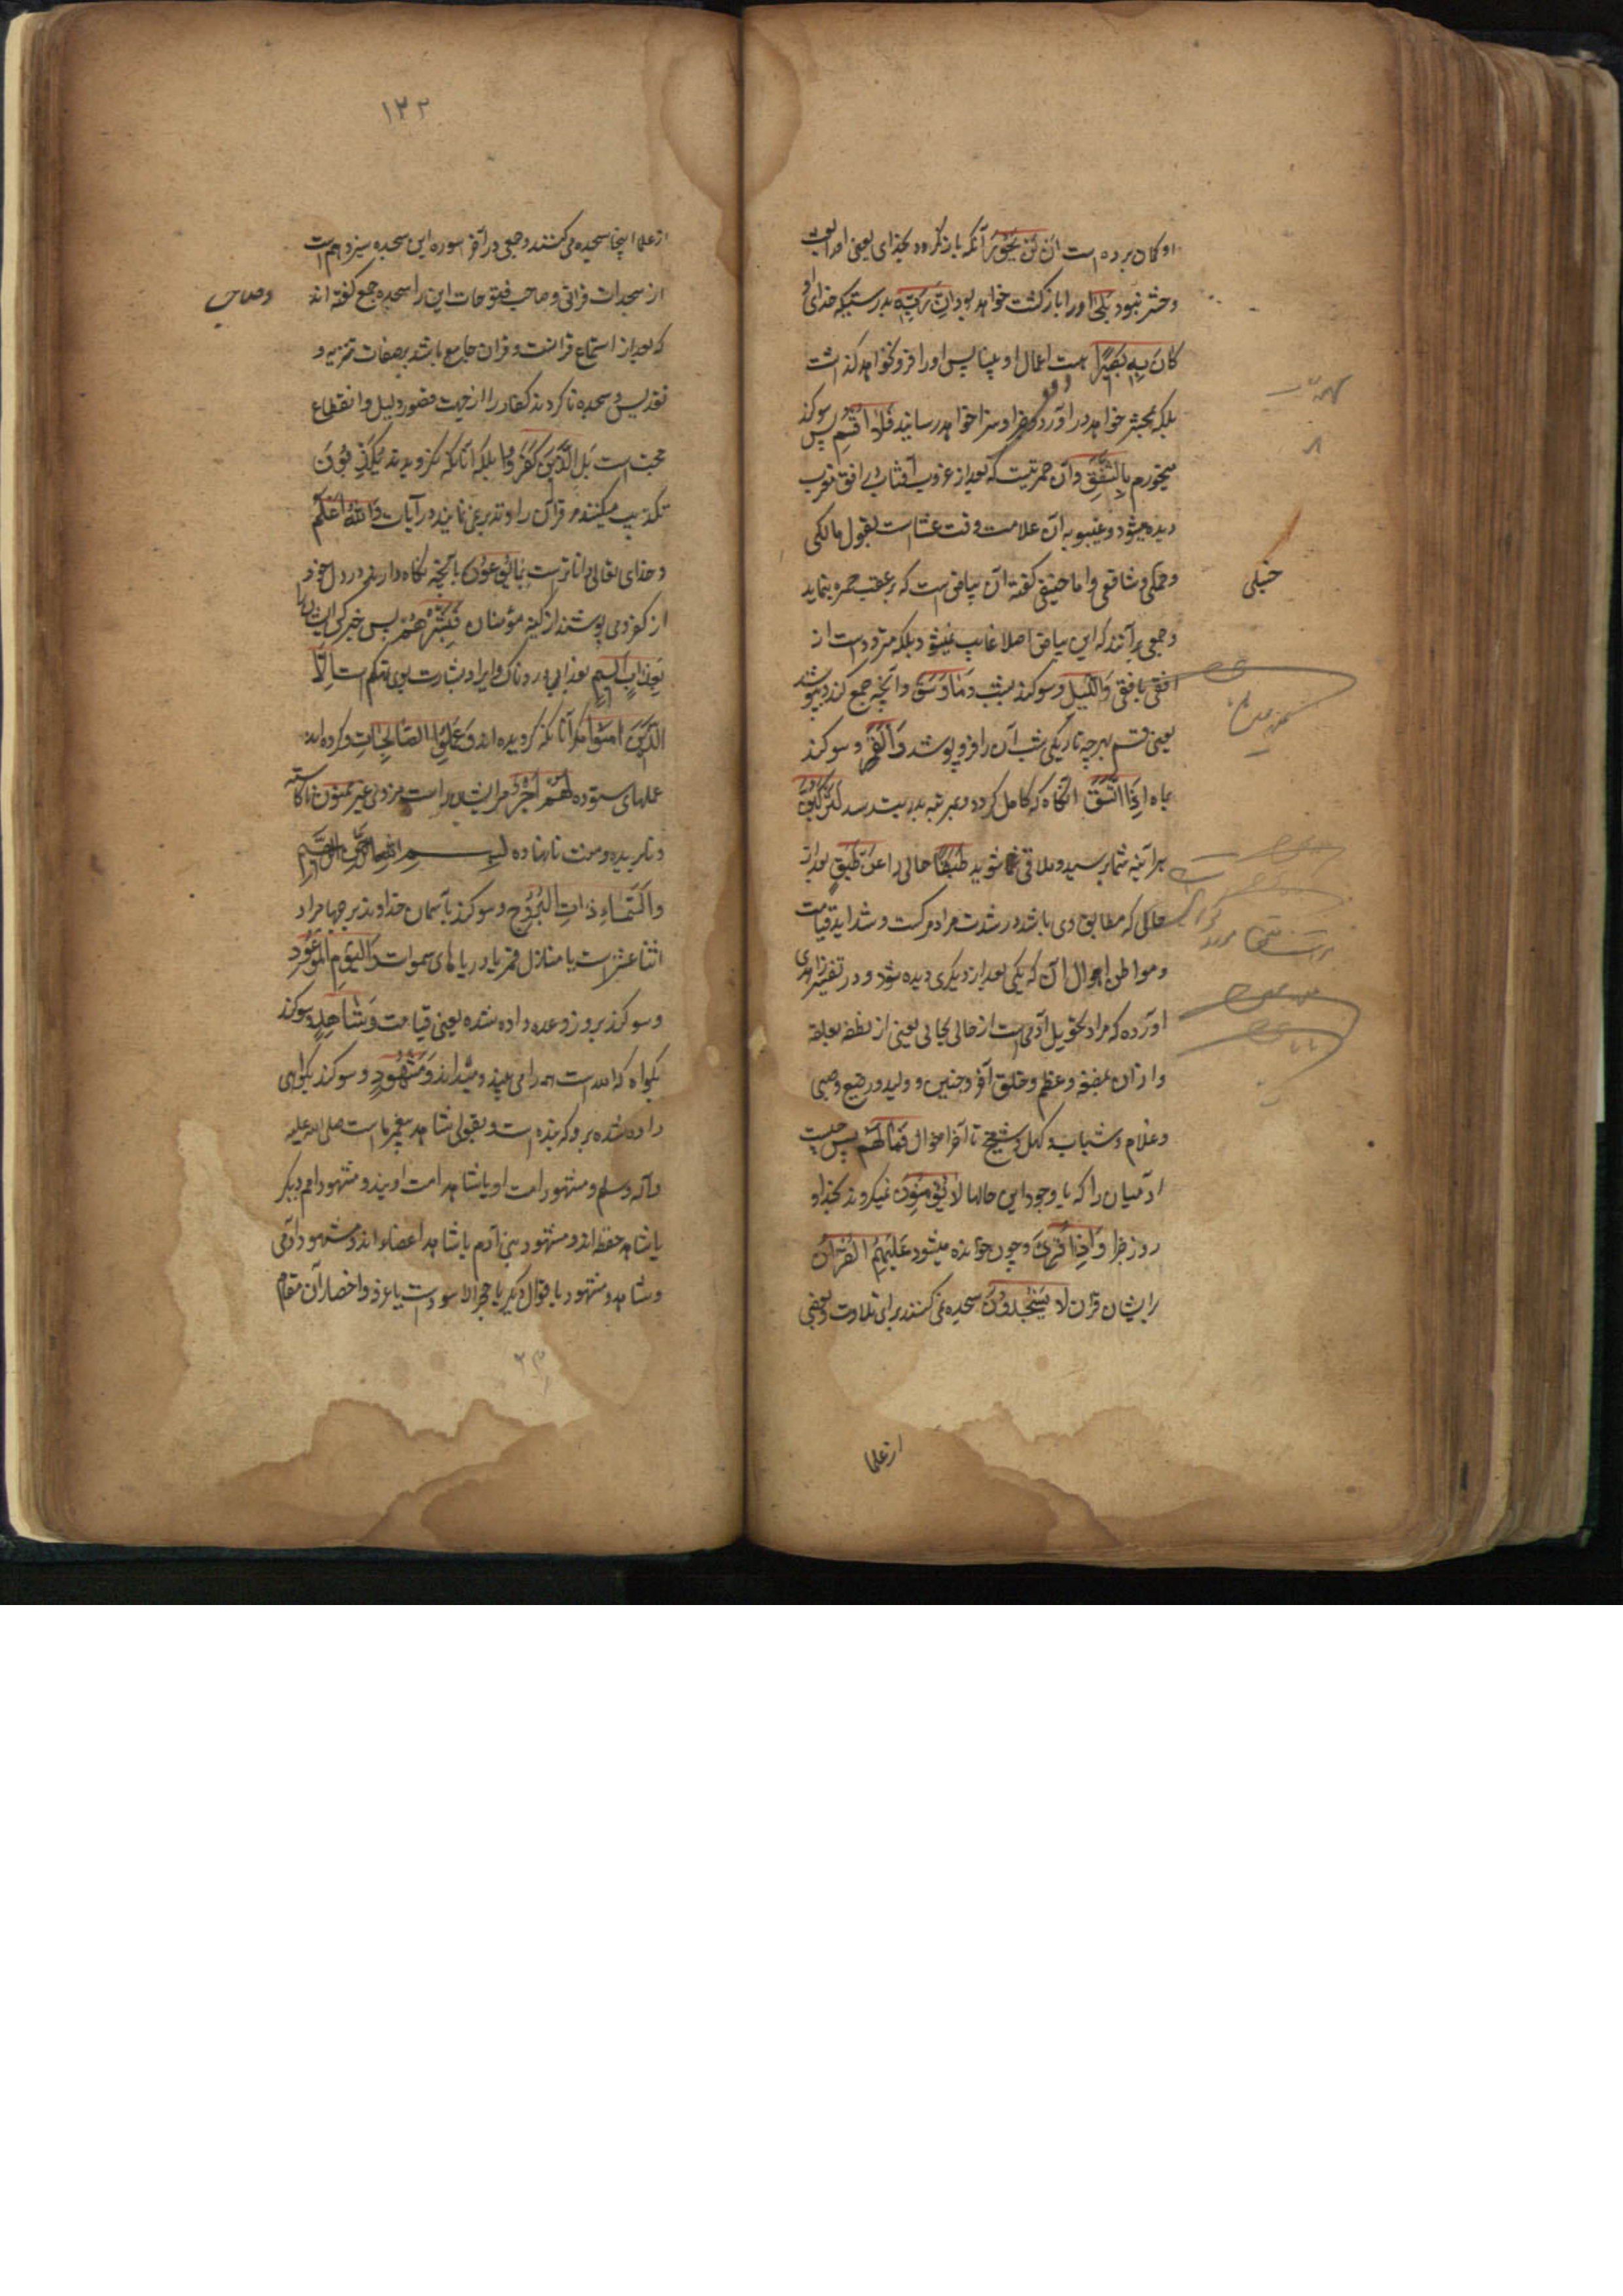 او گمان برده است ان لن یحور آنکه باز نگردد بخدای یعنی اورا بعث
و حشر نبود بلی اورا بازگشت خواهد بود ان ربه بدرستیکه خدای او
کان به بصیرا هست اعمال او بینا پس اورا فرو نخواهد گذاشت
بلکه بحشر خواهد در آورد و جزا و سزا خواهد رسانید فلا اقسم پس سوگند
میخورم بالشفق وآن حمرتیست که بعد از غروب آفتاب در افق مغرب
دیده میشود و غیبوبه آن علامت وقت عشا است بقول مالکی
و حنبلی و شافعی و اما حنیفی گفته آن بیاض است که بر عقب حمره بنماید
حنبلی
و جمعی برآنند که این بیاض اصلا غایب نمیشود بلکه متردد است از
افقی بافقی واللیل و سوگند بشب وما وسق و آنچه جمع کند و بپوشد
یعنی قسم بهرچه تاریکی شب آن را فرو پوشد والقمر و سوگند
بماه اذا اتسق آنگاه که کامل گردد و بمرتبه بدریت رسد لترکبن
هر آینه شما برسید و ملاقی شوید طبقا حالی را عن طبق بعد از
حالی که مطابق وی باشد در شدت مراد مرگست و شداید قیامت
و مواطن اهوال آن که یکی بعد از دیگری دیده شود و در تفسیر زاهدی
آورده که مراد تحویل آدمی است از حالی بحالی یعنی از نطفه بعلقه
و از آن بمضغه و عظم و خلق آخر و جنین و ولید و رضیع و صبی
و غلام و شباب و کهل و شیخ تا آخر احوال فما لهم پس چیست
آدمیان را که با وجود این حالها لا یؤمنون نمیگروند بخدا و
روز جزا واذا قرئ و چون خوانده میشود علیهم القرآن
برایشان قرآن لا یسجدون سجده نمی کنند برای تلاوت و بعضی
از علما
۱۲۲
از علما اینجا سجده می کنند و جمعی در آخر سوره این سجده سیزدهم است
از سجدات قرآنی و صاحب فتوحات این را سجده جمع گفته اند
و صاحب
که بعد از استماع قرائت و قرآن جامع باشد بر صفات تنزیه و
تقدیس و سجده نا کردن کفار را از جهت قصور دلیل و انقطاع
حجت است بل الذین کفروا بلکه آنانکه نگرویدند یکذبون
تکذیب میکنند مر قرآن را و تدبر نمی نمایند در آیات والله اعلم
و خدای تعالی داناتر است بما یوعون بآنچه نگاه دارند در دل خود
از کفر و می پوشند از کینه مؤمنان فبشرهم پس خبر کن ایشان را
بعذاب الیم بعذابی دردناک و ایراد بشارت بوی تهکم است الا
الذین آمنوا مگر آنانکه گرویده اند وعملوا الصالحات و کرده اند
عملهای ستوده لهم اجر مر ایشان راست مزدی غیر ممنون ناکاسته
و نابریده و منت نانهاده بسم الله الرحمن الرحیم
والسماء ذات البروج و سوگند بآسمان خداوند برجها مراد
اثنا عشر است یا منازل قمر یا دریاهای سموات والیوم الموعود
و سوگند بروز وعده داده شده یعنی قیامت وشاهد و سوگند
بگواه که الله است همه را می بیند و میداند ومشهود و سوگند بگواهی
داده شده برو که بنده است و بقولی شاهد پیغمبر ما است صلی الله علیه
وآله وسلم و مشهود امت او یا شاهد امت اویند و مشهود امم دیگر
یا شاهد حفظه اند و مشهود بنی آدم یا شاهد اعضاء اند و مشهود آدمی
و شاهد و مشهود باقوال دیگر یا حجر الاسود است یا عرفه و احضار آن مقام